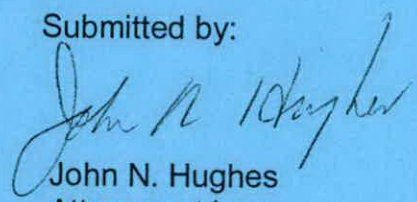 Submitted by:
John N Hughes
John N. Hughes